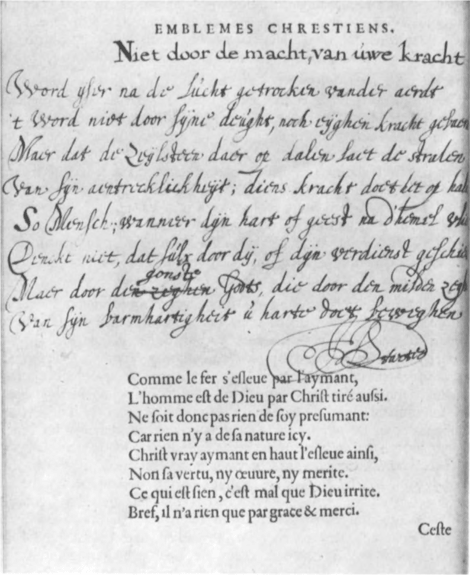 EMBLEMES CHRESTIENS.
Niet door de macht, van úwe kracht
Word yser na de lúcht getrocken vander aerdt
't Word niet door sÿne deúght, noch eÿghen kracht
Maer dat de Zeÿlsteen daer op dalen laet de stralen
Van sÿn aentrecklickheÿt; diens kracht doet het op
So Mensch, wanneer dÿn hart of geest na d'hemel
Denckt niet, dat súlx door dÿ, of dÿn verdienst
gonste
Maer door den zeghen Gods, die door den milden
Van sÿn barmhartigheit ú harte doet beweghen
Comme le fer s'esleue par l'aymant,
L'homme est de Dieu par Christ tiré aussi.
Ne soit donc pas rien de soy presumant:
Car rien n'y a de sa nature icy.
Christ vray aymant en haut l'esleue ainsi,
Non sa vertu, ny œuure, ny merite.
Ce qui est sien, c'est mal que Dieu irrite.
Bref, il n'a rien que par grace & merci.
Ceste